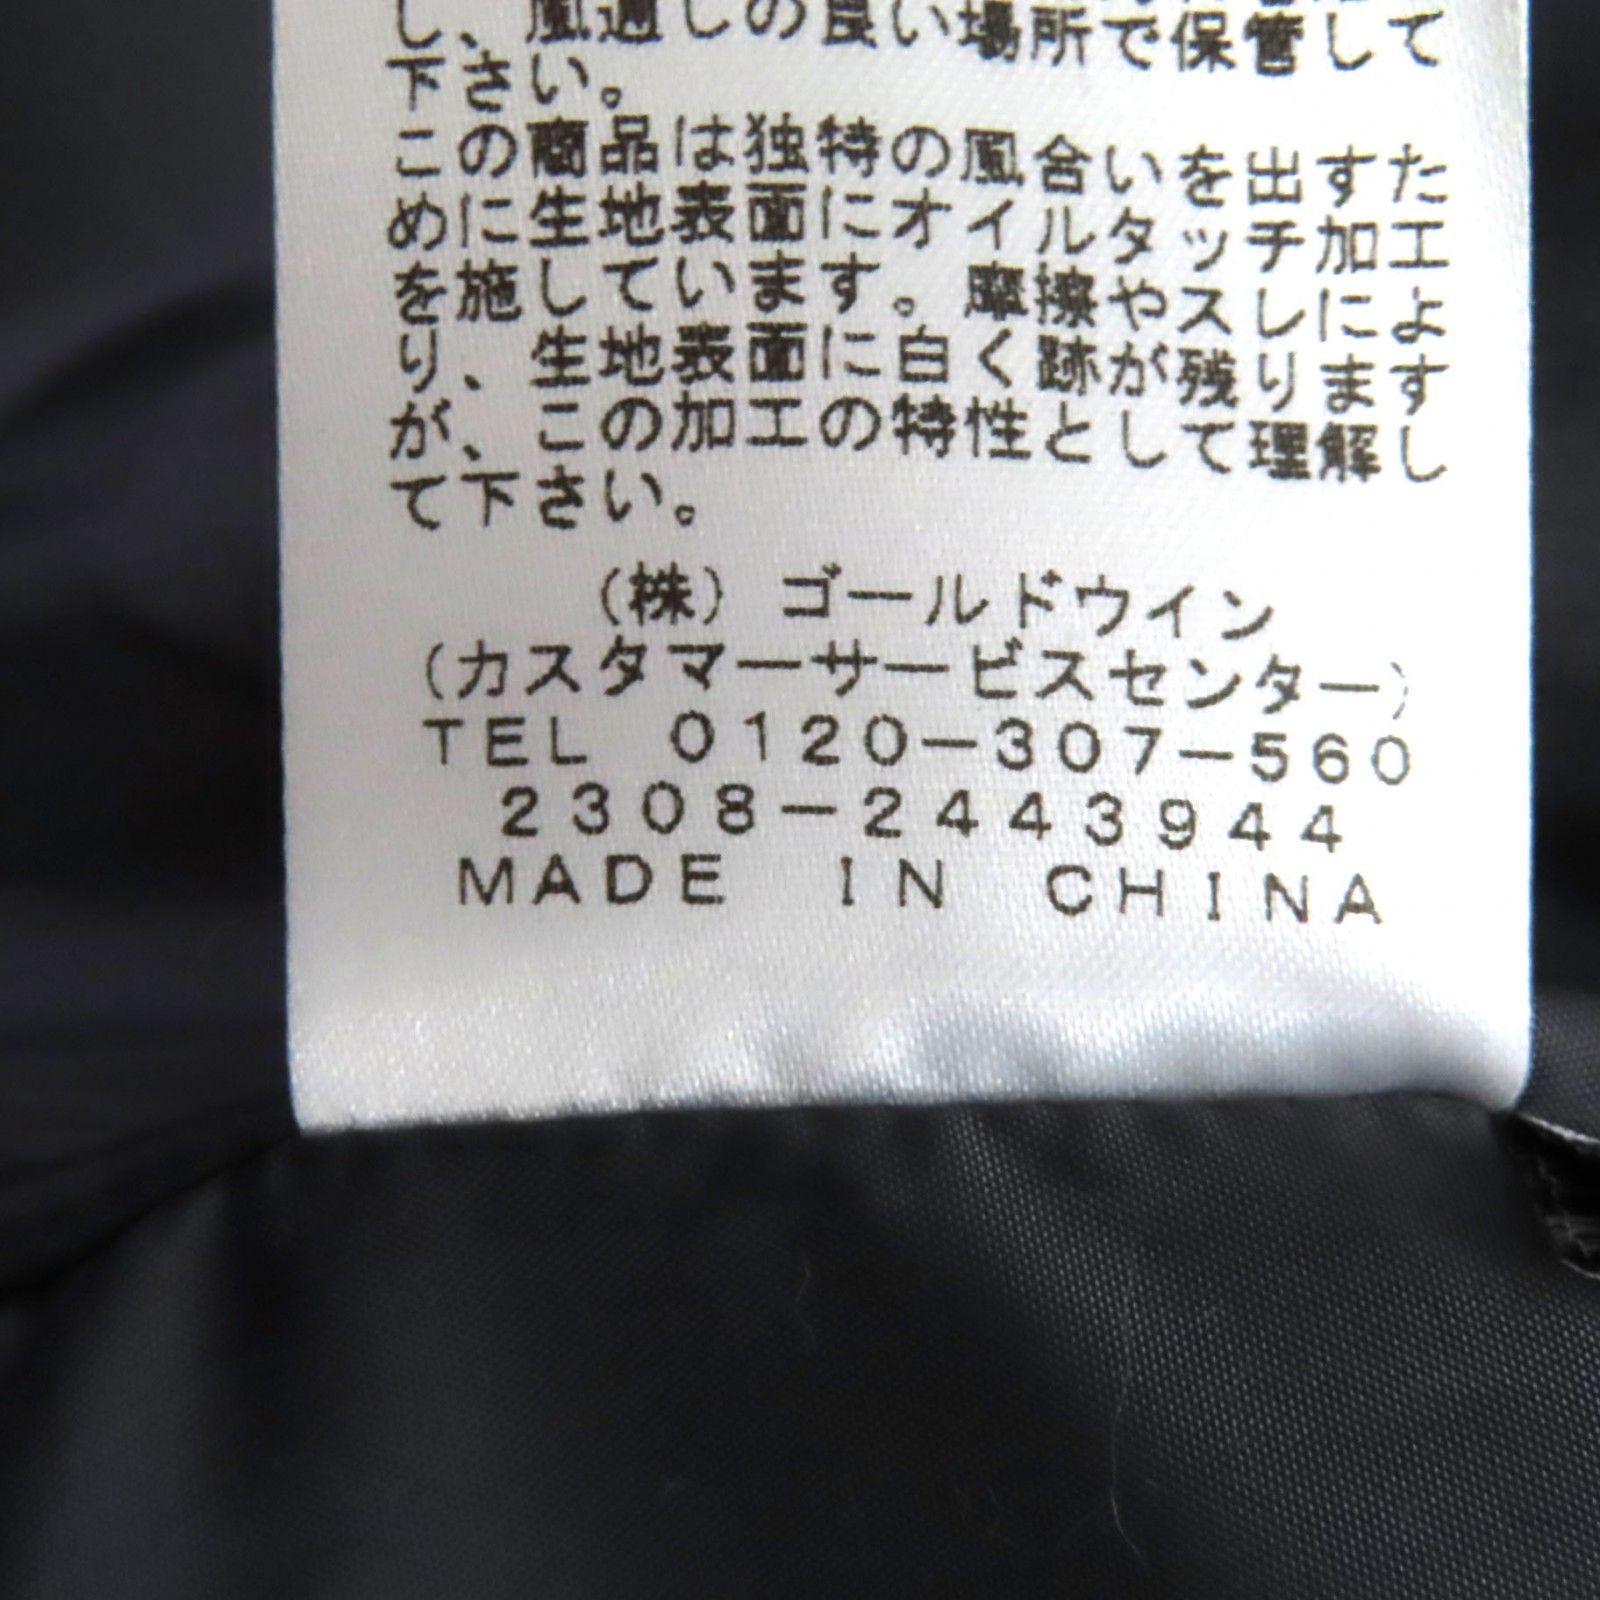 し、風通しの良い場所で保管して
下さい。
この商品は独特の風合いを出すた
めに生地表面にオイルタッチ加工
を施しています。摩擦やスレによ
り、生地表面に白く跡が残ります
が、この加工の特性として理解し
て下さい。
(株)ゴールドウイン
(カスタマーサービスセンター)
TEL 0120-307-560
2308-2443944
MADE IN CHINA